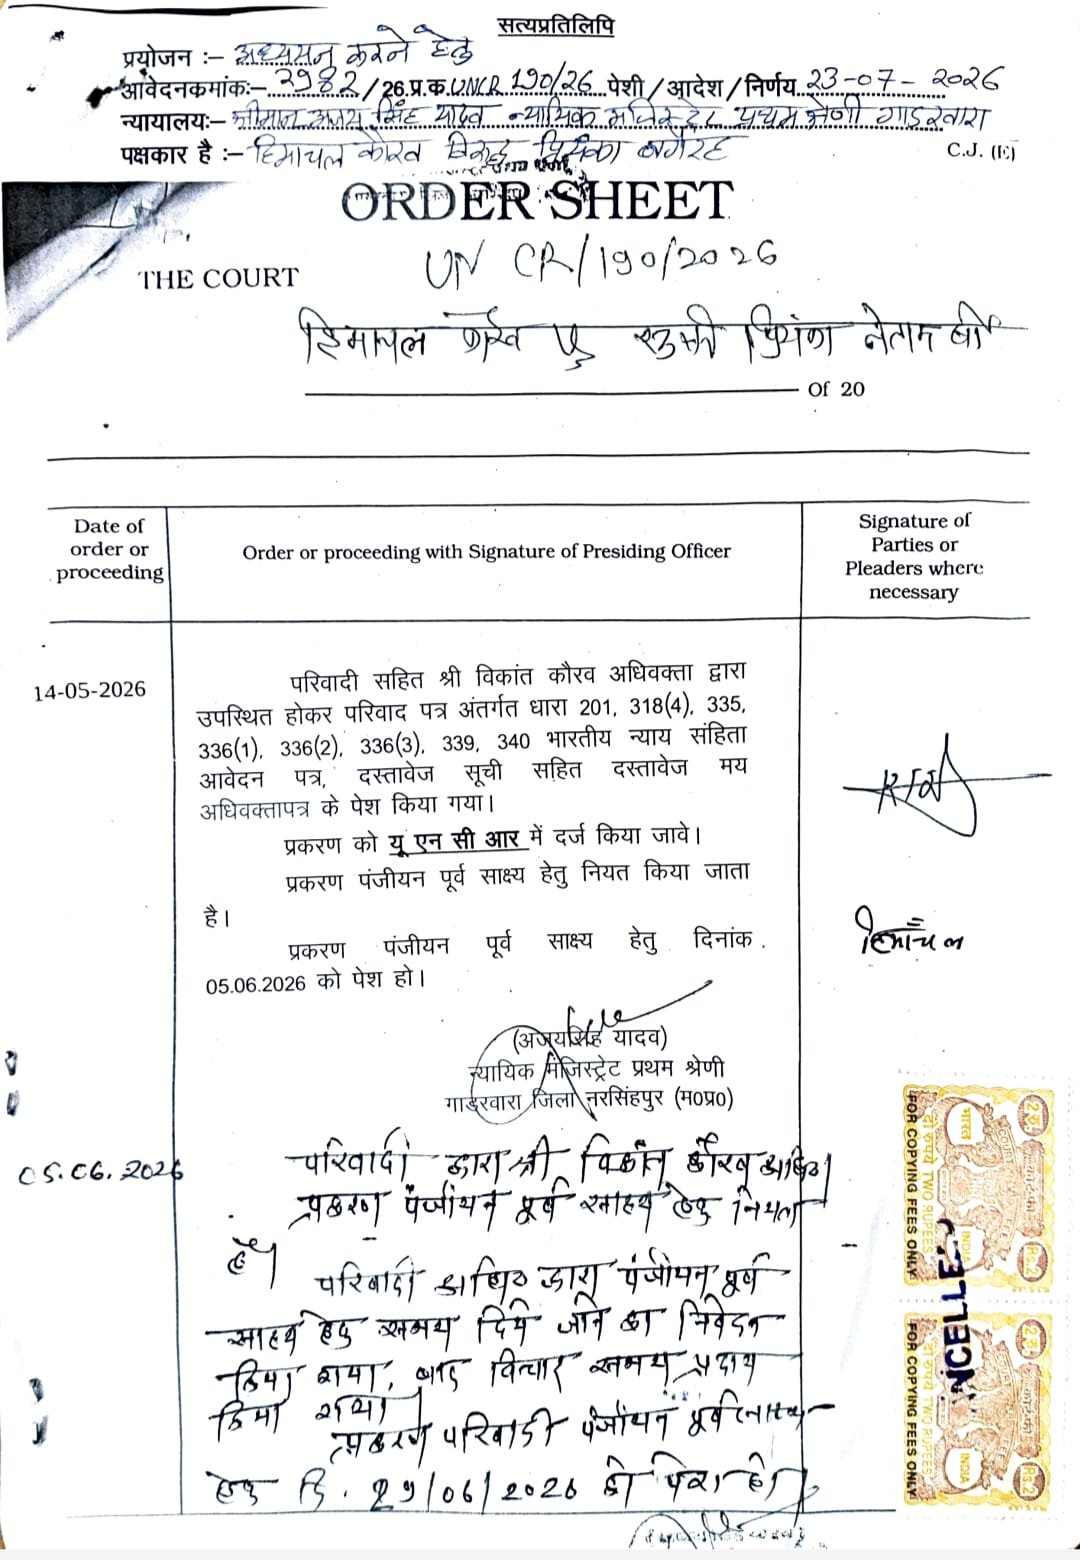 सत्यप्रतिलिपि
प्रयोजन :- अध्ययन करने हेतु
आवेदनकमांकः- 2982 /26.प्र.क. UNCR 190/26 पेशी / आदेश / निर्णय 23-07-2026
न्यायालयः- श्रीमान अजय सिंह यादव न्यायिक मजिस्ट्रेट प्रथम श्रेणी गाडरवारा
पक्षकार है :- हिमाचल कौरव विरूद्ध प्रियंका वगैरह
C.J. (E)
ORDER SHEET
UN CR/190/2026
THE COURT
हिमाचल कौरव प्रियंका नेताम
Of 20
Date of order or proceeding
Order or proceeding with Signature of Presiding Officer
Signature of Parties or Pleaders where necessary
14-05-2026
परिवादी सहित श्री विकांत कौरव अधिवक्ता द्वारा
उपस्थित होकर परिवाद पत्र अंतर्गत धारा 201, 318(4), 335,
336(1), 336(2), 336(3), 339, 340 भारतीय न्याय संहिता
आवेदन पत्र, दस्तावेज सूची सहित दस्तावेज मय
अधिवक्तापत्र के पेश किया गया।
प्रकरण को यू एन सी आर में दर्ज किया जावे।
प्रकरण पंजीयन पूर्व साक्ष्य हेतु नियत किया जाता
है।
प्रकरण पंजीयन पूर्व साक्ष्य हेतु दिनांक
05.06.2026 को पेश हो।
हिमाँचल
(अजयसिंह यादव)
न्यायिक मजिस्ट्रेट प्रथम श्रेणी
गाडरवारा जिला नरसिंहपुर (म0प्र0)
05.06.2026
परिवादी द्वारा श्री विकांत कौरव अधि०।
प्रकरण पंजीयन पूर्व साक्ष्य हेतु नियत
है।
परिवादी अधि० द्वारा पंजीयन पूर्व
साक्ष्य हेतु समय दिये जाने का निवेदन
किया गया, बाद विचार समय प्रदाय
किया गया।
प्रकरण परिवादी पंजीयन पूर्व साक्ष्य
हेतु दि. 29/06/2026 को पेश हो।
2रु.
भारत
COURT FEE
INDIA
Rs.2
दो रुपये TWO RUPEES
FOR COPYING FEES ONLY
2रु.
भारत
INDIA
Rs.2
दो रुपये TWO RUPEES
FOR COPYING FEES ONLY
NCELLE